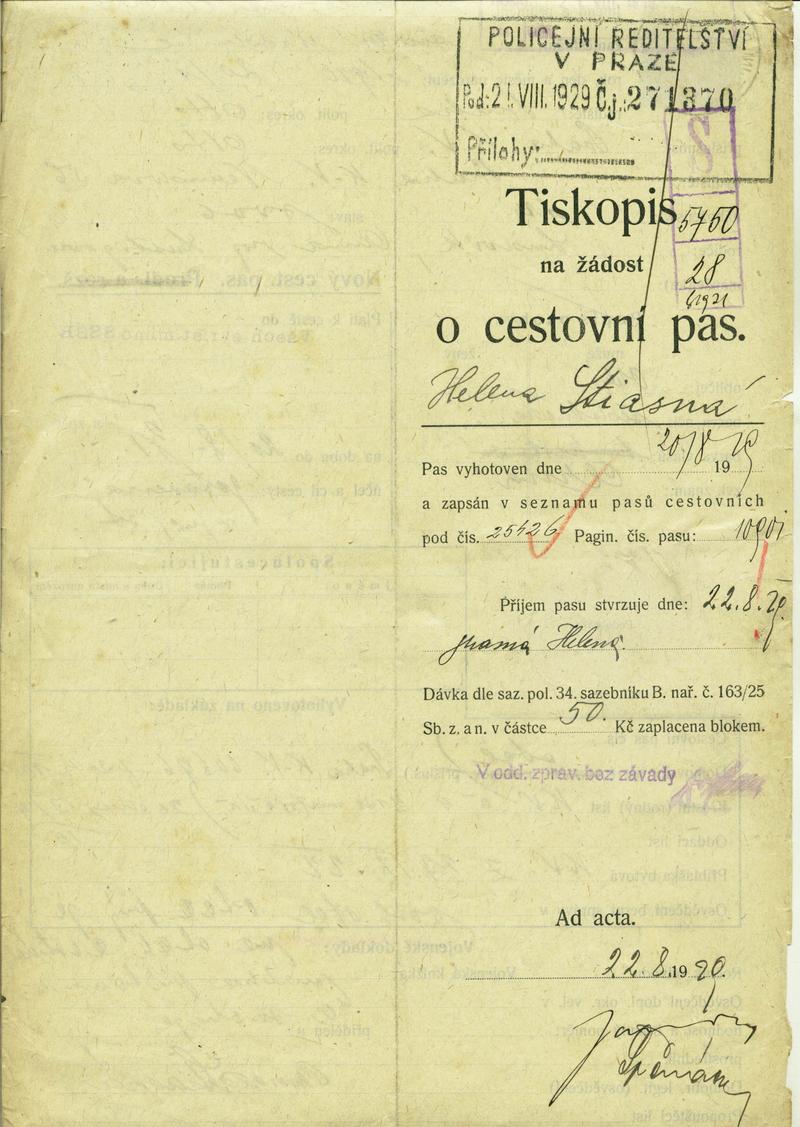 POLICEJNÍ ŘEDITELSTVÍ
V PRAZE
Pod: 21. VIII. 1929 Č.j.: 271370
Přílohy:
S
Tiskopis
5760
na žádost
28
o cestovní pas.
Helena Stiasná
Pas vyhotoven dne 20/8 1929
a zapsán v seznamu pasů cestovních
pod čís. 25426 Pagin. čís. pasu:
Příjem pasu stvrzuje dne: 22.8.29
Helena
Dávka dle saz. pol. 34. sazebníku B. nař. č. 163/25
Sb. z. a n. v částce 50. Kč zaplacena blokem.
V odd. zprav. bez závady
Ad acta.
22.8.1929.